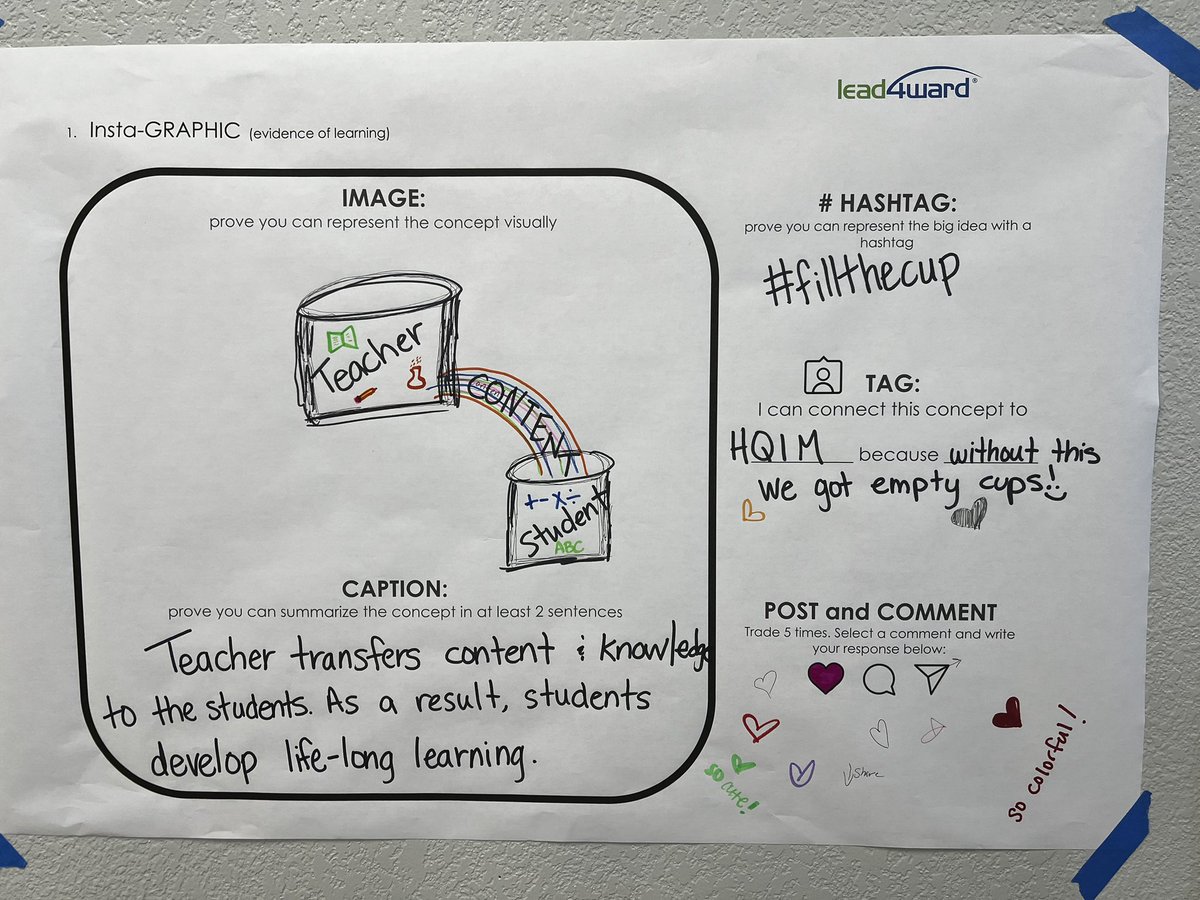 lead4ward®
1. Insta-GRAPHIC (evidence of learning)
IMAGE:
prove you can represent the concept visually
Teacher
CONTENT
+ - x ÷
Student
ABC
CAPTION:
prove you can summarize the concept in at least 2 sentences
Teacher transfers content & knowledge
to the students. As a result, students
develop life-long learning.
# HASHTAG:
prove you can represent the big idea with a
hashtag
#fillthecup
TAG:
I can connect this concept to
HQIM because without this
we got empty cups!
POST and COMMENT
Trade 5 times. Select a comment and write
your response below:
so cute!
Share
so colorful!